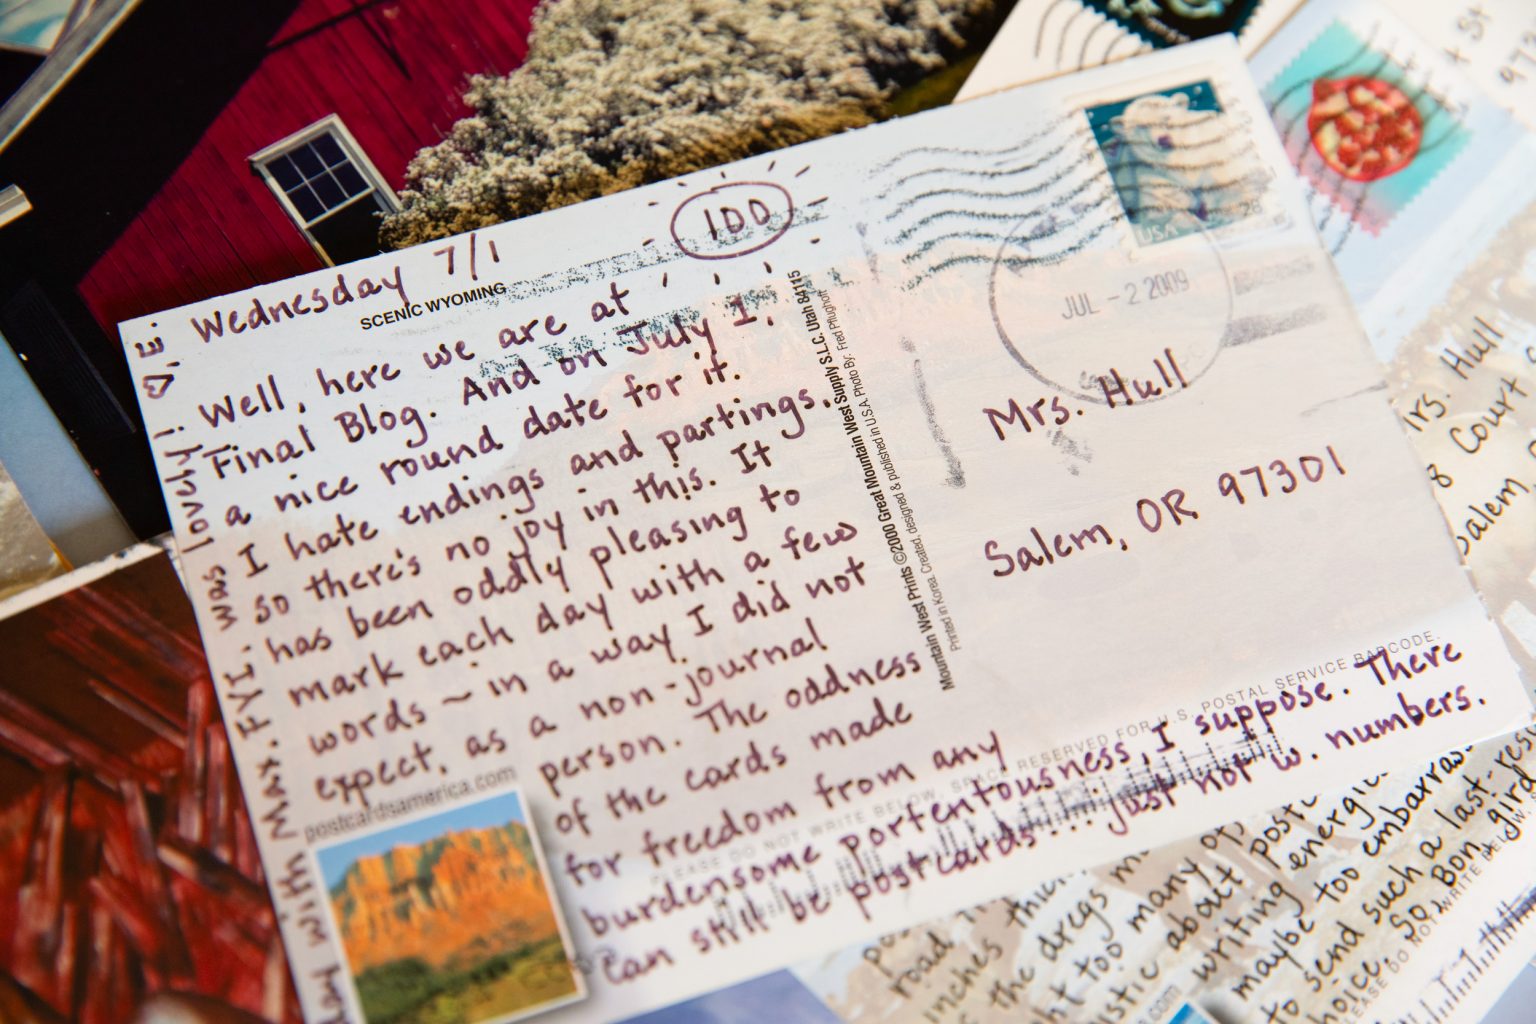 Wednesday 7/1
100
SCENIC WYOMING
Well, here we are at
Final Blog. And on July 1.
a nice round date for it.
I hate endings and partings,
so there's no joy in this. It
has been oddly pleasing to
mark each day with a few
words ~ in a way I did not
expect, as a non-journal
person. The oddness
of the cards made
for freedom from any
burdensome portentousness, I suppose. There
Can still be postcards... just not w. numbers.
with Max. FYI. was lovely! ♡, E
postcardsamerica.com
Mountain West Prints ©2000 Great Mountain West Supply S.L.C. Utah 84115
Printed in Korea. Created, designed & published in U.S.A. Photo By: Fred Pflughoft
USA
28
JUL - 2 2009
Mrs. Hull
Salem, OR 97301
PLEASE DO NOT WRITE BELOW, SPACE RESERVED FOR U.S. POSTAL SERVICE BARCODE.
St
Mrs. Hull
Court
Salem,
road
inches
thick
the dregs
too many of
about post
writing energi
maybe too embarras
to send such a last-res
So Bon